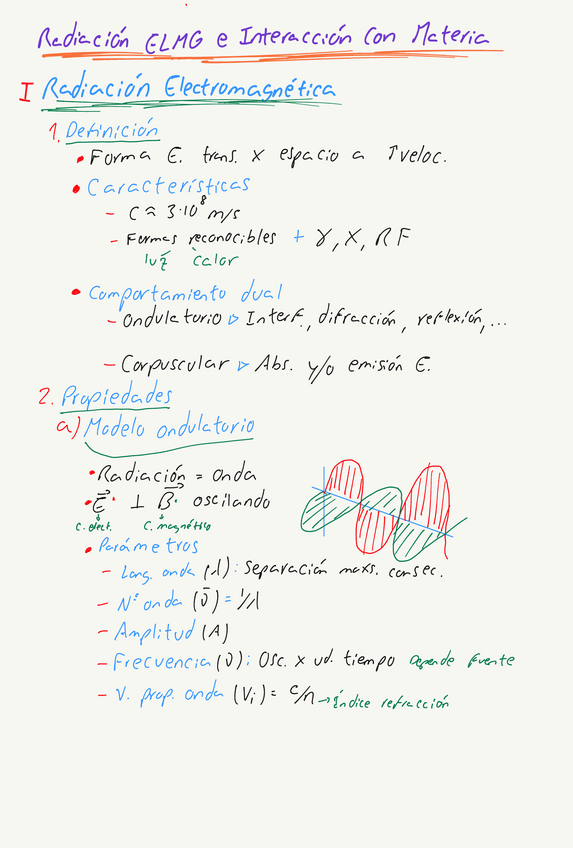 Radiación ELMG e Interacción Con Materia
I Radiación Electromagnética
1. Definición
• Forma E. trans. x espacio a ↑veloc.
• Características
- C ≈ 3·10⁸ m/s
- Formas reconocibles + γ, X, RF
luz calor
• Comportamiento dual
- Ondulatorio ▷ Interf., difracción, reflexión, ...
- Corpuscular ▷ Abs. y/o emisión E.
2. Propiedades
a) Modelo ondulatorio
• Radiación = onda
• E⃗ ⊥ B⃗ oscilando
C. elect. C. magnético
• Parámetros
- Long. onda (λ): Separación maxs. consec.
- Nº onda (ῡ) = 1/λ
- Amplitud (A)
- Frecuencia (υ): Osc. x ud. tiempo Depende fuente
- V. prop. onda (Vi) = c/n → índice refracción